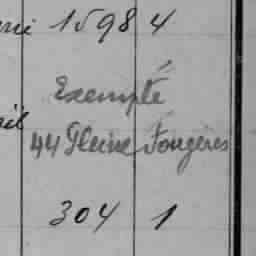 1598 4
Exempté
44 Pleine Fougères
304 1